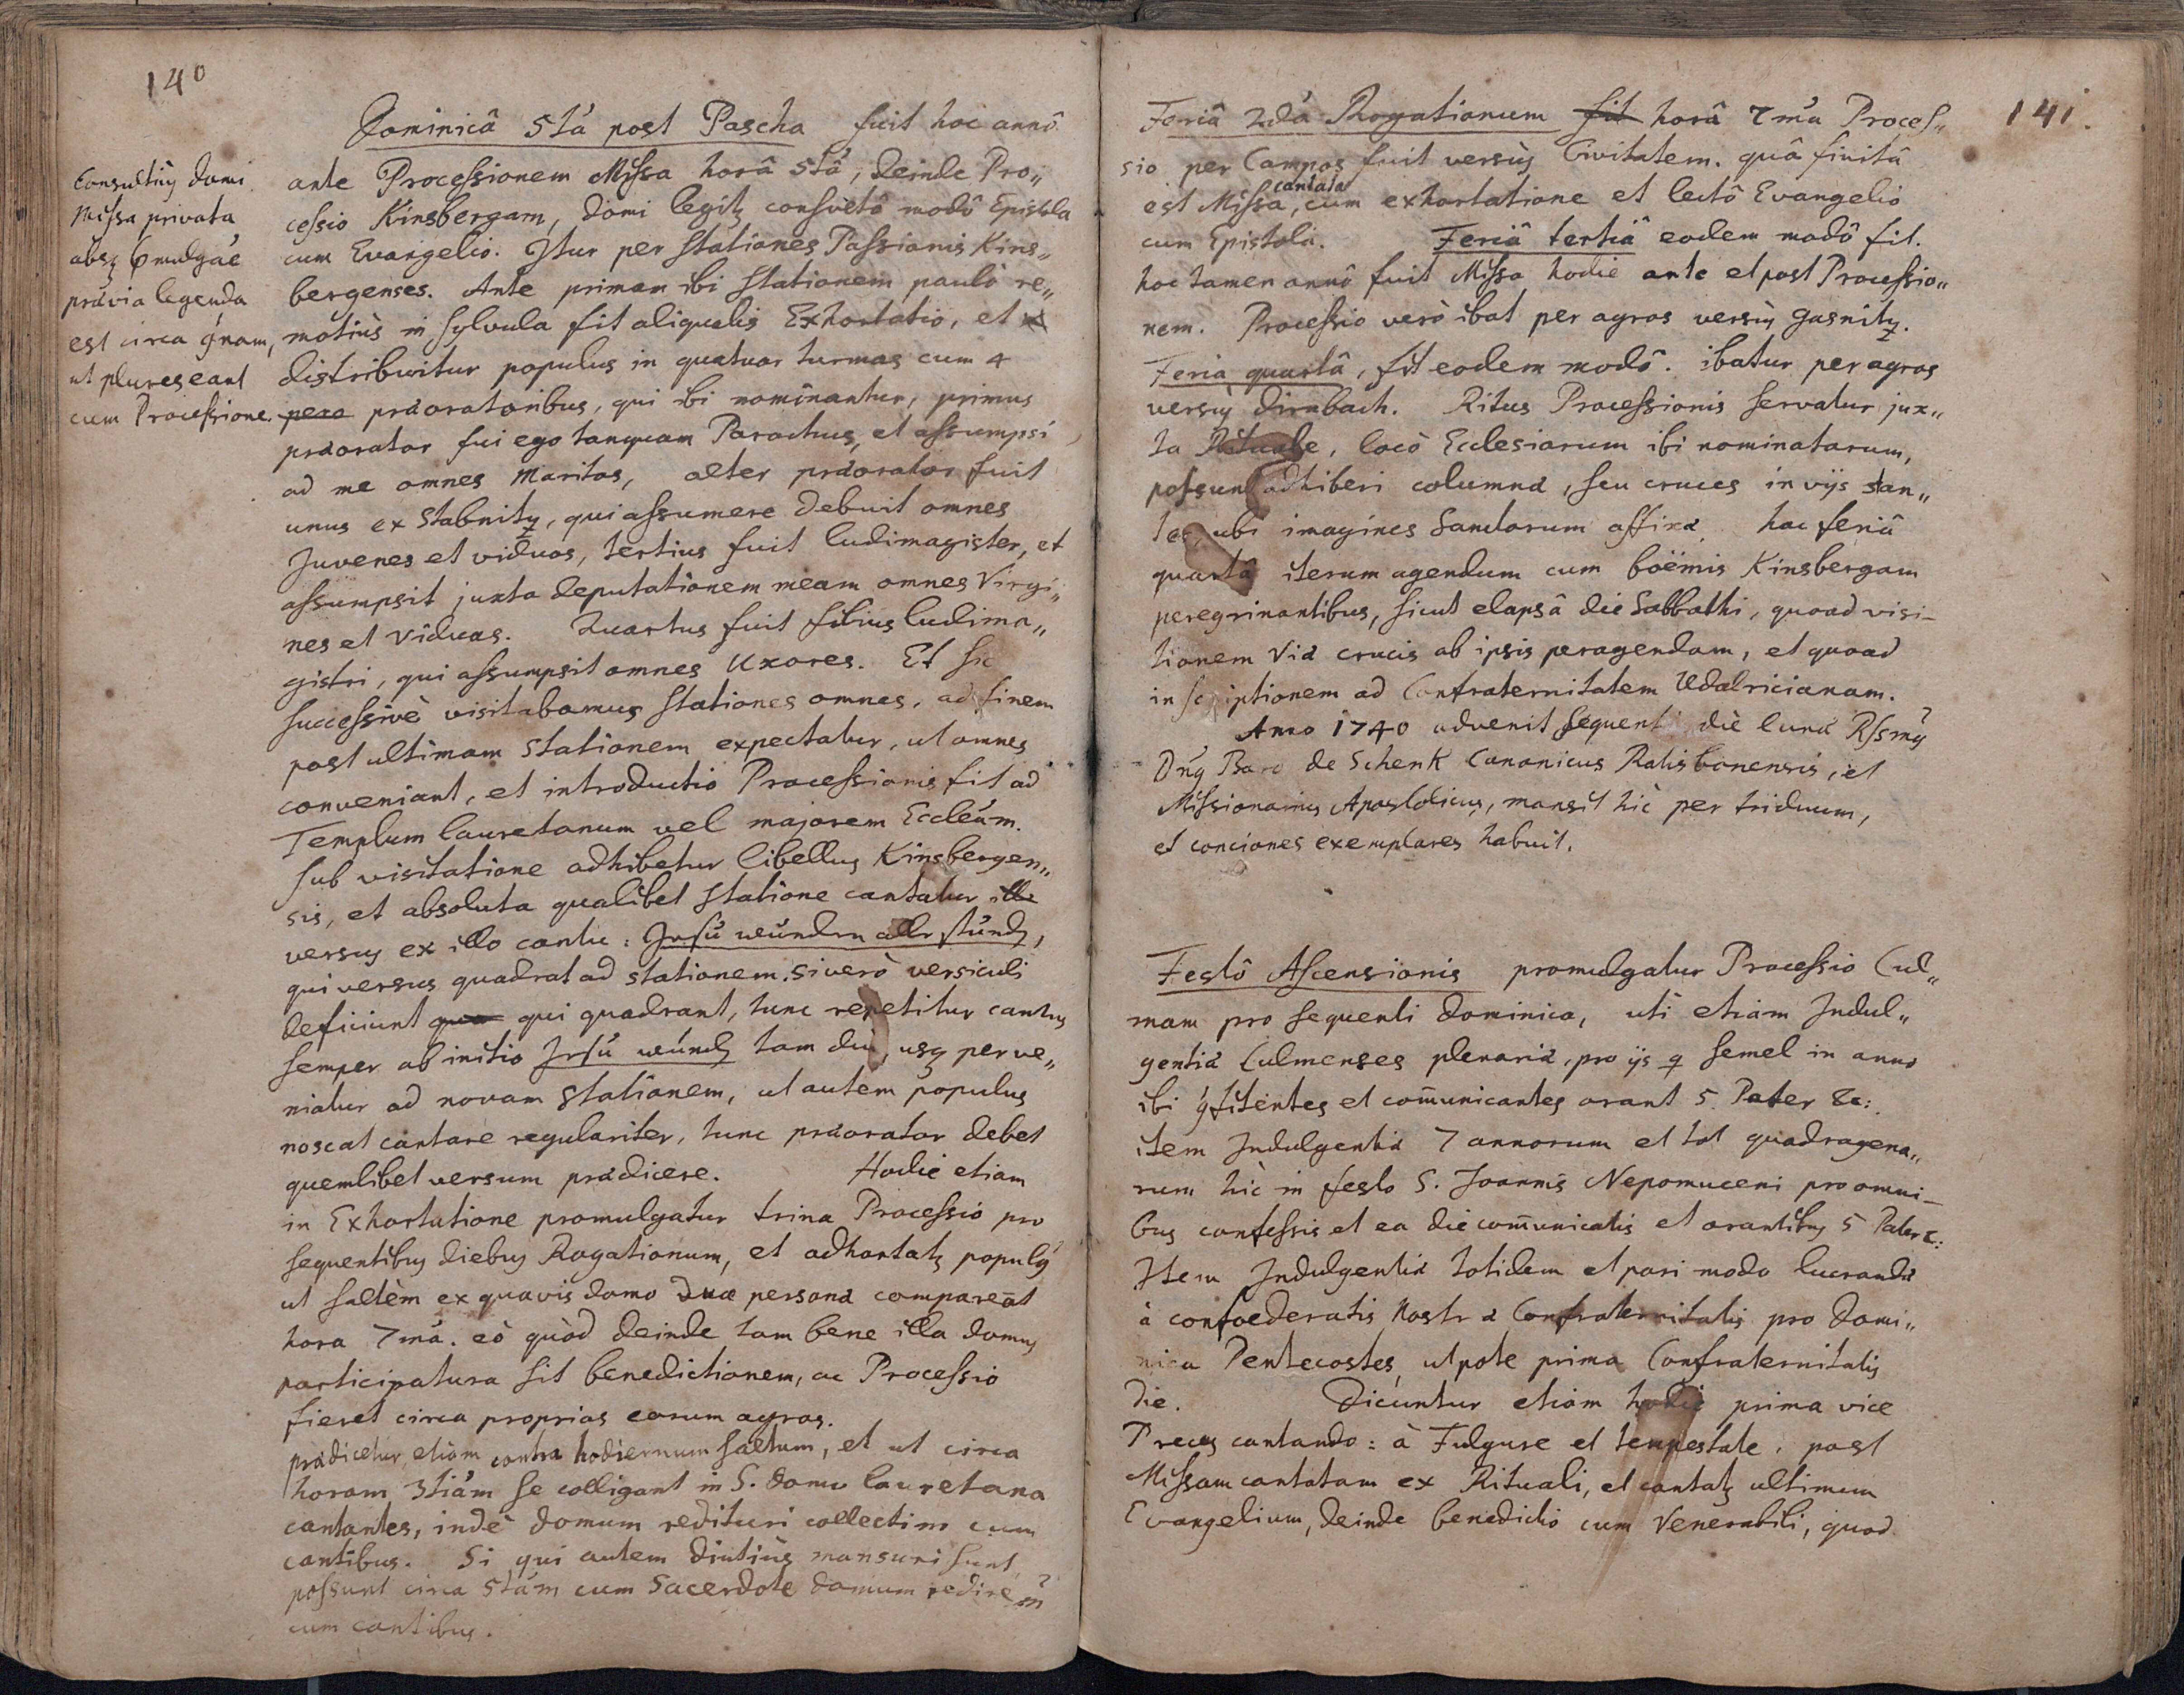 140
Dominicâ 5tá post Pascha fuit hoc annô
ante Processionem Missa horâ 5tâ, deinde Pro„
cessio Kinsbergam, domi legitr consvetô modô Epistola
cum Evangelio. Itur per stationes Passionis Kins„
bergenses. Ante primam ibi stationem paulò re„
motiùs in sylvula fit aliqualis Exhortatio, et
distribuitur populus in quatuor turmas cum 4
pero præoratoribus, qui ibi nominantur, primus
præorator fui ego tanquam Parochus, et assumpsi
ad me omnes Maritos, alter præorator fuit
unus ex Stabnitz, qui assumere debuit omnes
Juvenes et viduos, tertius fuit ludimagister, et
assumpsit juxta deputationem meam omnes Virgi„
nes et viduas. Quartus fuit filius ludima„
gistri, qui assumpsit omnes Uxores. Et sic
successivè visitabamus stationes omnes, ad finem
post ultimam stationem expectatur, ut omnes
conveniant, et introductio Processionis fit ad
Templum lauretanum vel majorem Eccleám.
sub visitatione adhibetur libellus Kinsbergen„
sis, et absoluta qualibet statione cantatur ille
versus ex illo cantu: Jesu wunden alle stund,
qui versus quadrat ad stationem. si verò versiculi
deficiunt qua qui quadrant, tunc repetitur cantus
semper ab initio Jesu wund tam diu, usq perve„
niatur ad novam stationem, ut autem populus
noscat cantare regulariter, tunc præorator debet
quemlibet versum prædicere. Hodie etiam
in Exhortatione promulgatur trina Processio pro
sequentibus diebus Rogationum, et adhortatr populus
ut saltèm ex quavis domo duæ personæ compareāt
hora 7má. eò quòd deinde tam bene illa domus
participatura sit benedictionem, ac Processio
fieret circa proprios eorum agros.
prædicetur etiam contra hodiernum saltum, et ut circa
horam 3tiám se colligant in S. domo lauretana
cantantes, indè domum redituri collectim cum
cantibus. Si qui autem diutiùs mansuri sunt,
possunt circa 5tám cum Sacerdote domum redire
cum cantibus.
Consultius domi
Missa privata
absq promulgaē
prævia legenda
est circa qnam,
ut plures eant
cum Processione.
141.
Feriâ 2dâ Rogationum fit horâ 7má Proces„
sio per Campos fuit versùs Civitatem. quâ finitâ
est Missa, cantata cum exhortatione et lectô Evangelio
cum Epistolâ. Feriâ tertiâ eodem modô fit.
hoc tamen annô fuit Missa hodie ante et post Processio„
nem. Processio verò ibat per agros versùs Gasnitz.
Feriâ quartâ, fit eodem modô. ibatur per agros
versùs dirnbach. Ritus Processionis servatur jux„
ta Rituale, locò Ecclesiarum ibi nominatarum,
possunt adhiberi columnæ, seu cruces in vijs stan„
tes, ubi imagines Sanctorum affixæ. hac feriâ
quartâ iterum agendum cum boëmis Kinsbergam
peregrinantibus, sicut elapsâ die Sabbathi, quoad visi-
tionem viæ crucis ab ipsis peragendam, et quoad
inscriptionem ad Confraternitatem Udalricianam.
Anno 1740 advenit sequenti die lunæ Rssmus
Dńus Baro de Schenk Canonicus Ratisbonensis, et
Missionarius Apostolicus, mansit hìc per triduum,
et conciones exemplares habuit.
Festô Ascensionis promulgatur Processio Cul„
mam pro sequenti dominica, uti etiam Indul„
gentiæ Culmenses plenariæ, pro ijs q semel in anno
ibi 9fitentes et com̄unicantes orant 5 Pater &c:
item Indulgentiæ 7 annorum et tot quadragena„
rum hìc in festo S. Joannis Nepomuceni pro omni-
bus confessis et ea die com̄unicatis et orantibus 5 Pater &:
Item Indulgentiæ totidem et pari modo lucrandæ
à confoederatis nostræ Confraternitatis pro domi„
nica Pentecostes, utpote prima Confraternitatis
die. Dicuntur etiam hodie prima vice
Preces cantando: à Fulgure et tempestate, post
Missam cantatam ex Rituali, et cantatr ultimum
Evangelium, deinde benedictio cum Venerabili, quod